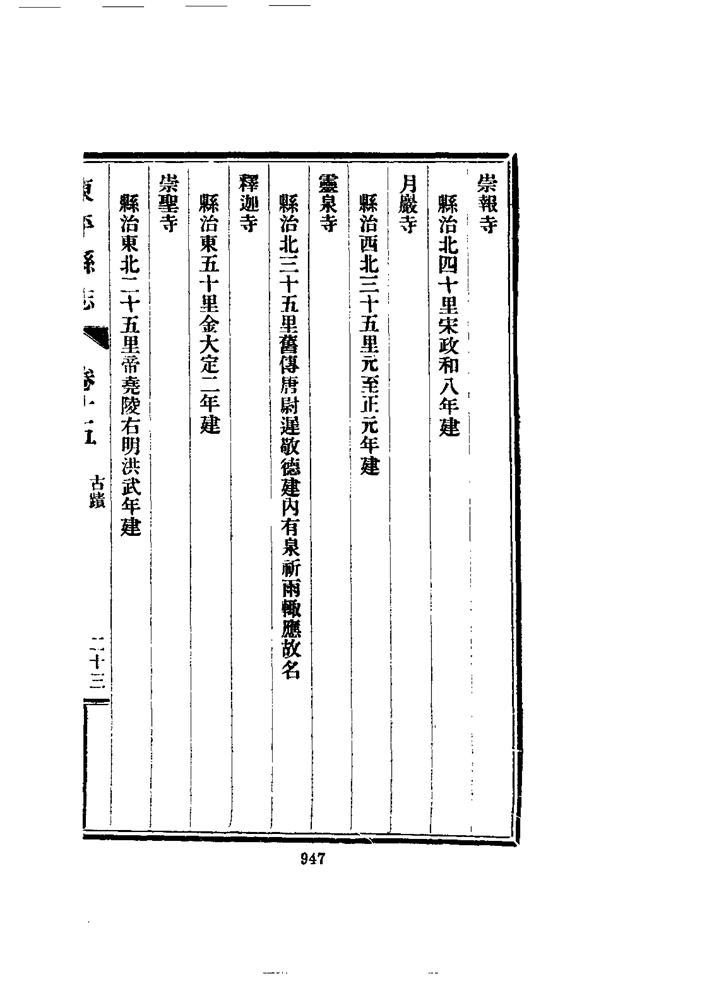 崇報寺
縣治北四十里宋政和八年建
月巖寺
縣治西北三十五里元至正元年建
靈泉寺
縣治北三十五里舊傳唐尉遲敬德建內有泉祈雨輙應故名
釋迦寺
縣治東五十里金大定二年建
崇聖寺
縣治東北二十五里帝堯陵右明洪武年建
東平縣志 卷十五 古蹟 二十三
947